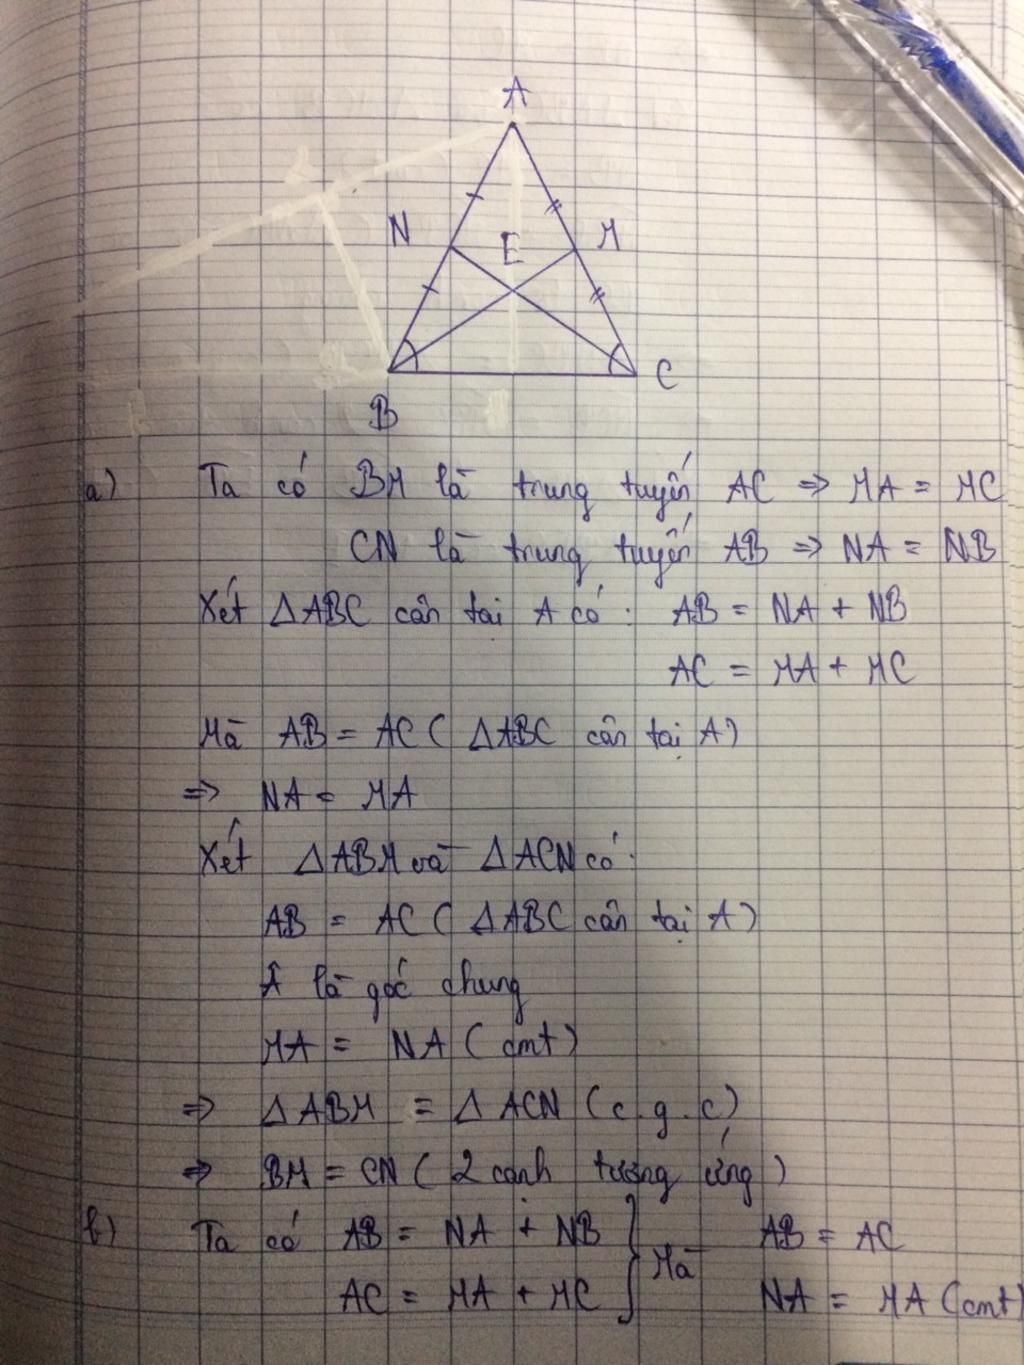 A
N
E
M
B
C
a) Ta có BM là trung tuyến AC => MA = MC
CN là trung tuyến AB => NA = NB
Xét ΔABC cân tại A có: AB = NA + NB
AC = MA + MC
Mà AB = AC ( ΔABC cân tại A)
=> NA = MA
Xét ΔABM và ΔACN có:
AB = AC ( ΔABC cân tại A)
Â là góc chung
MA = NA ( cmt)
=> ΔABM = ΔACN (c.g.c)
=> BM = CN ( 2 cạnh tương ứng )
b) Ta có AB = NA + NB } Mà AB = AC
AC = MA + MC NA = MA (cmt)